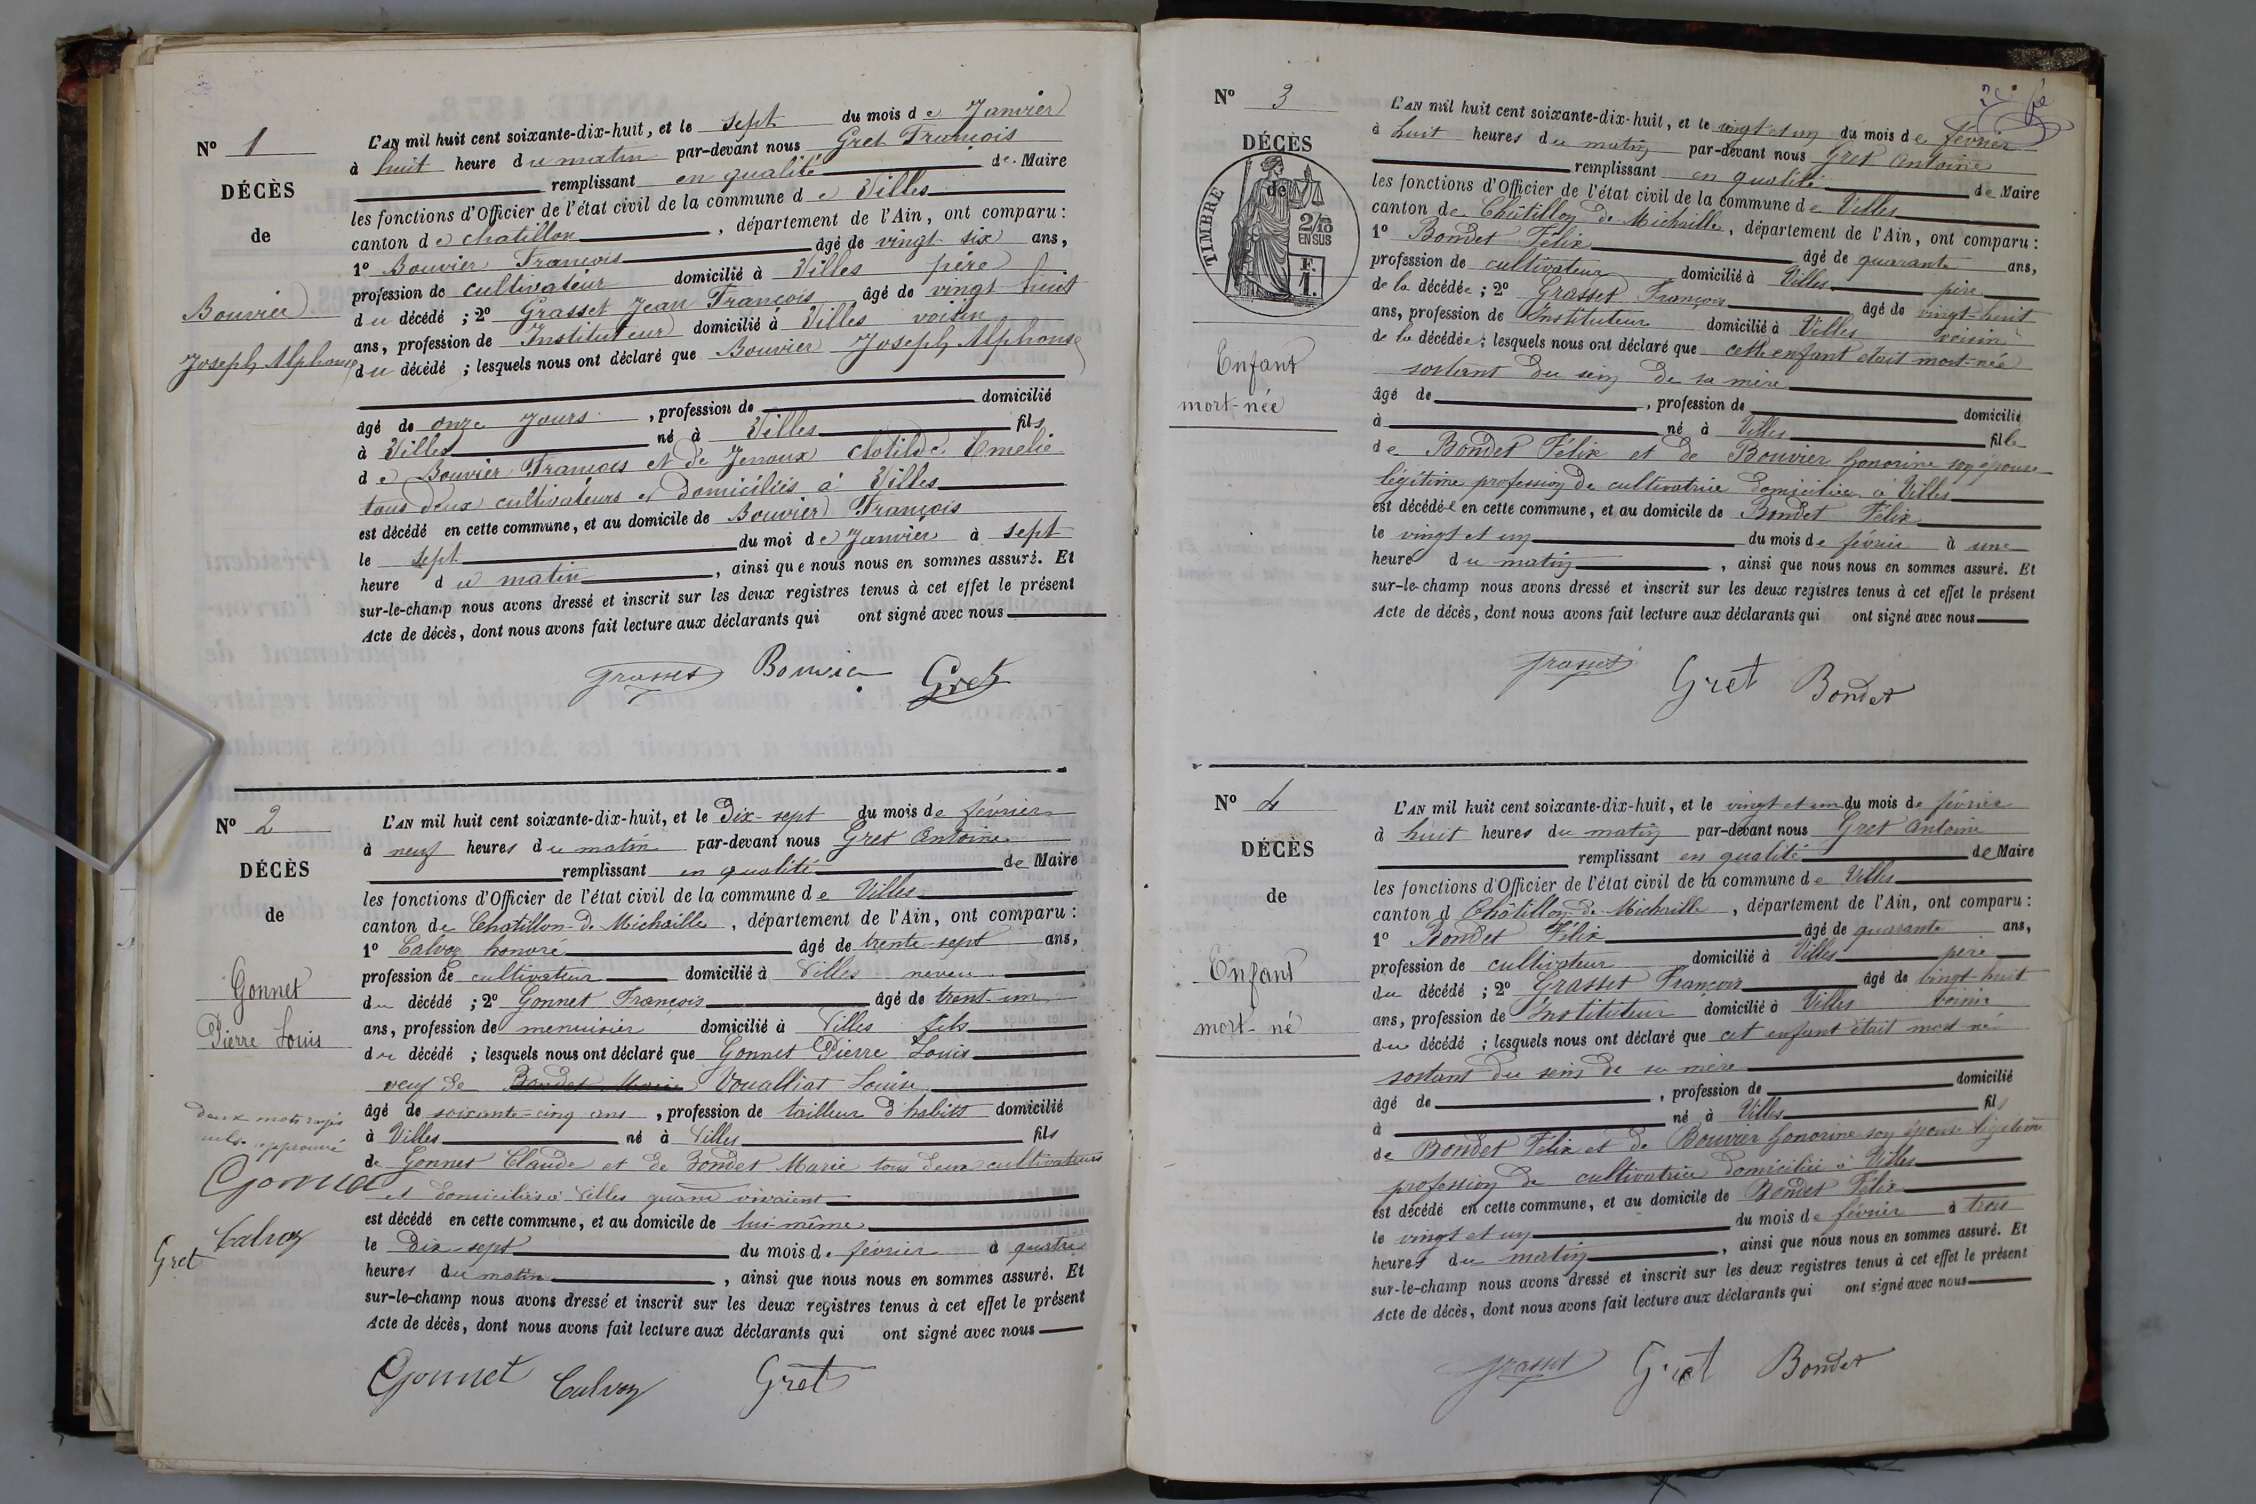 N° 1
DÉCÈS
de
Bouvier
Joseph Alphonse
L'AN mil huit cent soixante-dix-huit, et le sept du mois de Janvier
à huit heure du matin par-devant nous Gret François
remplissant en qualité de Maire
les fonctions d'Officier de l'état civil de la commune de Villes
canton de chatillon, département de l'Ain, ont comparu :
1° Bouvier François âgé de vingt six ans,
profession de cultivateur domicilié à Villes père
du décédé ; 2° Grasset Jean François âgé de vingt huit
ans, profession de Instituteur domicilié à Villes voisin
du décédé ; lesquels nous ont déclaré que Bouvier Joseph Alphonse
âgé de onze jours, profession de domicilié
à Villes né à Villes fils
de Bouvier François et de Jenoux Clotilde Emelie
tous deux cultivateurs et domiciliés à Villes
est décédé en cette commune, et au domicile de Bouvier François
le sept du moi de Janvier à sept
heure du matin, ainsi que nous nous en sommes assuré. Et
sur-le-champ nous avons dressé et inscrit sur les deux registres tenus à cet effet le présent
Acte de décès, dont nous avons fait lecture aux déclarants qui ont signé avec nous
Grasset Bouvier Gret
N° 2
DÉCÈS
de
Gonnet
Pierre Louis
deux mots rayés
nuls approuvé
Gonnet
Calvoz
Gret
L'AN mil huit cent soixante-dix-huit, et le Dix-sept du mois de février
à neuf heures du matin par-devant nous Gret Antoine
remplissant en qualité de Maire
les fonctions d'Officier de l'état civil de la commune de Villes
canton de Chatillon-de-Michaille, département de l'Ain, ont comparu :
1° Calvoz honoré âgé de trente-sept ans,
profession de cultivateur domicilié à Villes neveu
du décédé ; 2° Gonnet François âgé de trent-un
ans, profession de menuisier domicilié à Villes fils
du décédé ; lesquels nous ont déclaré que Gonnet Pierre Louis
veuf de Bondet Marie Voualliat Louise
âgé de soixante-cinq ans, profession de tailleur d'habits domicilié
à Villes né à Villes fils
de Gonnet Claude et de Bondet Marie tous deux cultivateurs
et domiciliés à Villes quand vivaient
est décédé en cette commune, et au domicile de lui-même
le Dix-sept du mois de février à quatre
heures du matin, ainsi que nous nous en sommes assuré. Et
sur-le-champ nous avons dressé et inscrit sur les deux registres tenus à cet effet le présent
Acte de décès, dont nous avons fait lecture aux déclarants qui ont signé avec nous
Gonnet Calvoz Gret
N° 3
DÉCÈS
de
TIMBRE
2/10
EN SUS
F.
1.
Enfant
mort-née
L'AN mil huit cent soixante-dix-huit, et le vingt et un du mois de février
à huit heures du matin par-devant nous Gret Antoine
remplissant en qualité de Maire
les fonctions d'Officier de l'état civil de la commune de Villes
canton de Châtillon de Michaille, département de l'Ain, ont comparu :
1° Bondet Félix âgé de quarante ans,
profession de cultivateur domicilié à Villes père
de la décédée ; 2° Grasset François âgé de vingt-huit
ans, profession de Instituteur domicilié à Villes voisin
de la décédée ; lesquels nous ont déclaré que cette enfant était mort-née
sortant du sein de sa mère
âgé de, profession de domicilié
à né à Villes fille
de Bondet Félix et de Bouvier honorine son épouse
légitime profession de cultivatrice domiciliée à Villes
est décédée en cette commune, et au domicile de Bondet Félix
le vingt et un du mois de février à une
heure du matin, ainsi que nous nous en sommes assuré. Et
sur-le-champ nous avons dressé et inscrit sur les deux registres tenus à cet effet le présent
Acte de décès, dont nous avons fait lecture aux déclarants qui ont signé avec nous
Grasset Gret Bondet
N° 4
DÉCÈS
de
Enfant
mort-né
L'AN mil huit cent soixante-dix-huit, et le vingt et un du mois de février
à huit heures du matin par-devant nous Gret Antoine
remplissant en qualité de Maire
les fonctions d'Officier de l'état civil de la commune de Villes
canton d Châtillon de Michaille, département de l'Ain, ont comparu :
1° Bondet Félix âgé de quarante ans,
profession de cultivateur domicilié à Villes père
du décédé ; 2° Grasset François âgé de vingt-huit
ans, profession de Instituteur domicilié à Villes voisin
du décédé ; lesquels nous ont déclaré que cet enfant était mort né
sortant du sein de sa mère
âgé de, profession de domicilié
à né à Villes fils
de Bondet Félix et de Bouvier honorine son épouse légitime
profession de cultivatrice domiciliée à Villes
est décédé en cette commune, et au domicile de Bondet Félix
le vingt et un du mois de février à trois
heures du matin, ainsi que nous nous en sommes assuré. Et
sur-le-champ nous avons dressé et inscrit sur les deux registres tenus à cet effet le présent
Acte de décès, dont nous avons fait lecture aux déclarants qui ont signé avec nous
Grasset Gret Bondet